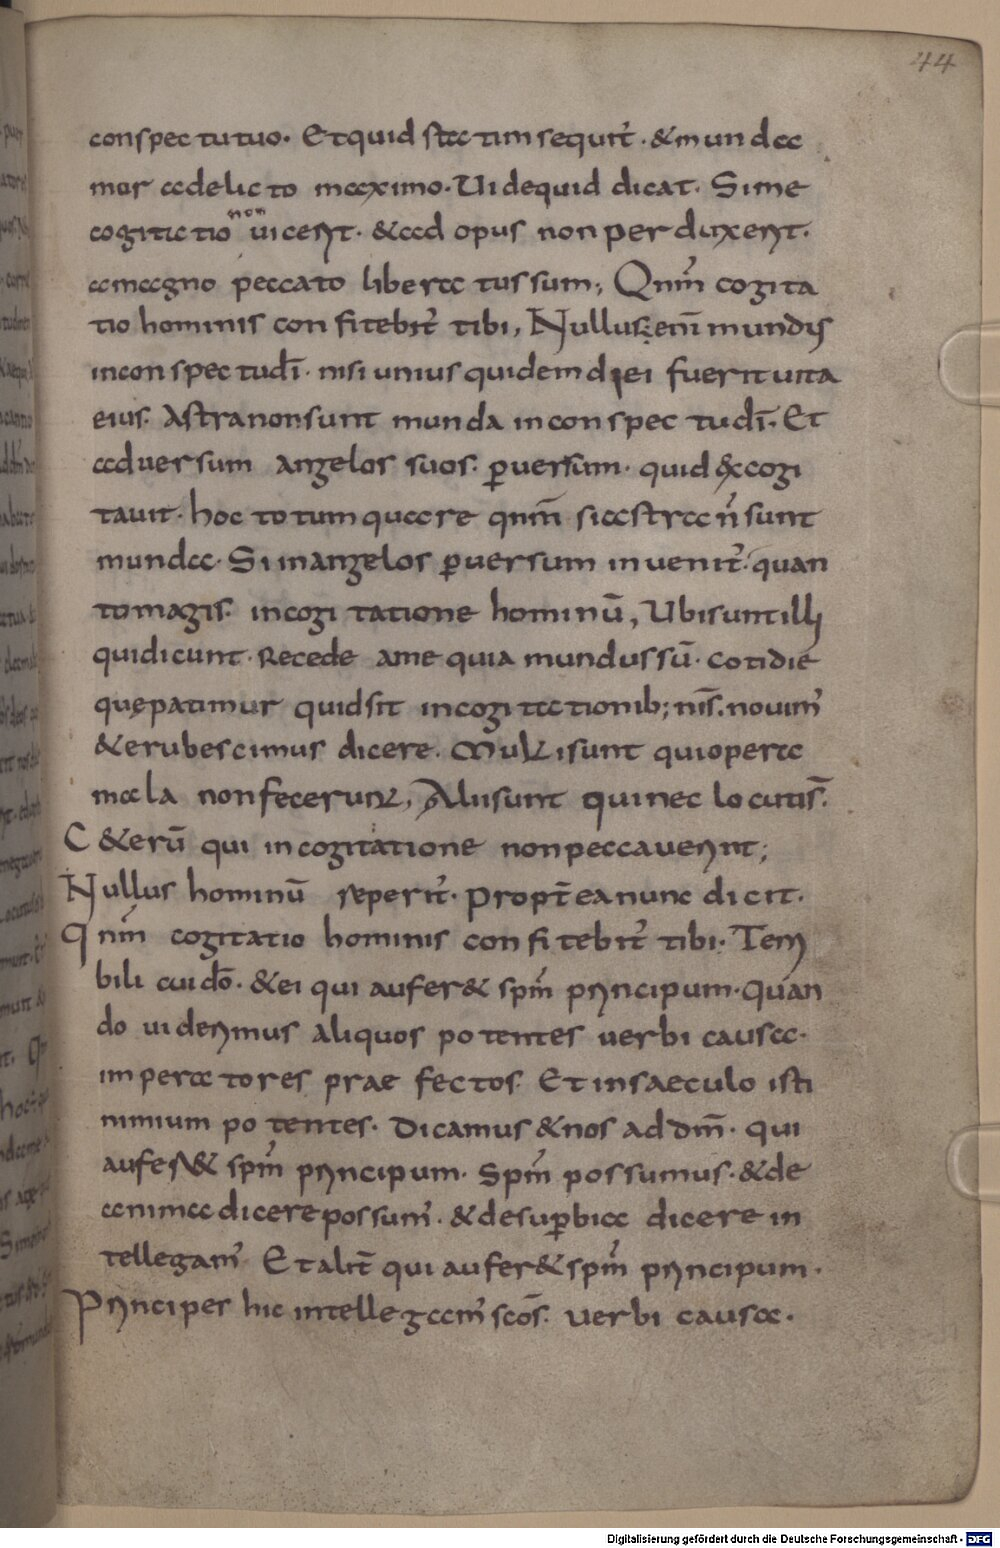 44
conspectu tuo. Et quid statim sequit̄. & munda
mur a delicto maximo. Uide quid dicat. Si me
cogitatio non uicerit. & ad opus non perduxerit.
a magno peccato liberatus sum; Qnm̄ cogita
tio hominis confitebit̄ tibi, Nullus enī mundus
in conspectu dī. nisi unius quidem diei fuerit uita
eius. Astra non sunt munda in conspectu dī. Et
aduersum angelos suos. puersum. quid excogi
tauit. hoc totum quare qnm̄ si astra n̄ sunt
munda. Si in angelos puersum inuenit̄. quan
to magis. in cogitatione hominū, Ubi sunt illi
qui dicunt. Recede a me quia mundus sū. cotidie
quę patimur quid sit in cogitationib; nr̄is. nouim̄
& erubescimus dicere. Multi sunt qui opera
mala non fecerunt, Alii sunt qui nec locuti s̄.
C & erū qui in cogitatione non peccauerint;
Nullus hominū reperit̄. propt̄ea nunc dicit.
Qnm̄ cogitatio hominis confitebit̄ tibi. Terri
bili cui dō. & ei qui aufer& spm̄ principum. Quan
do uiderimus aliquos potentes uerbi causa.
imperatores praefectos. Et in saeculo isti
nimium potentes. Dicamus & nos ad dm̄. qui
aufert& spm̄ principum. Spm̄ possumus. & de
anima dicere possum̄. & de supbia dicere in
tellegam̄. Et alit̄ qui aufer& spm̄ principum.
Principes hic intellegam̄ scōs. uerbi causa.
Digitalisierung gefördert durch die Deutsche Forschungsgemeinschaft - DFG